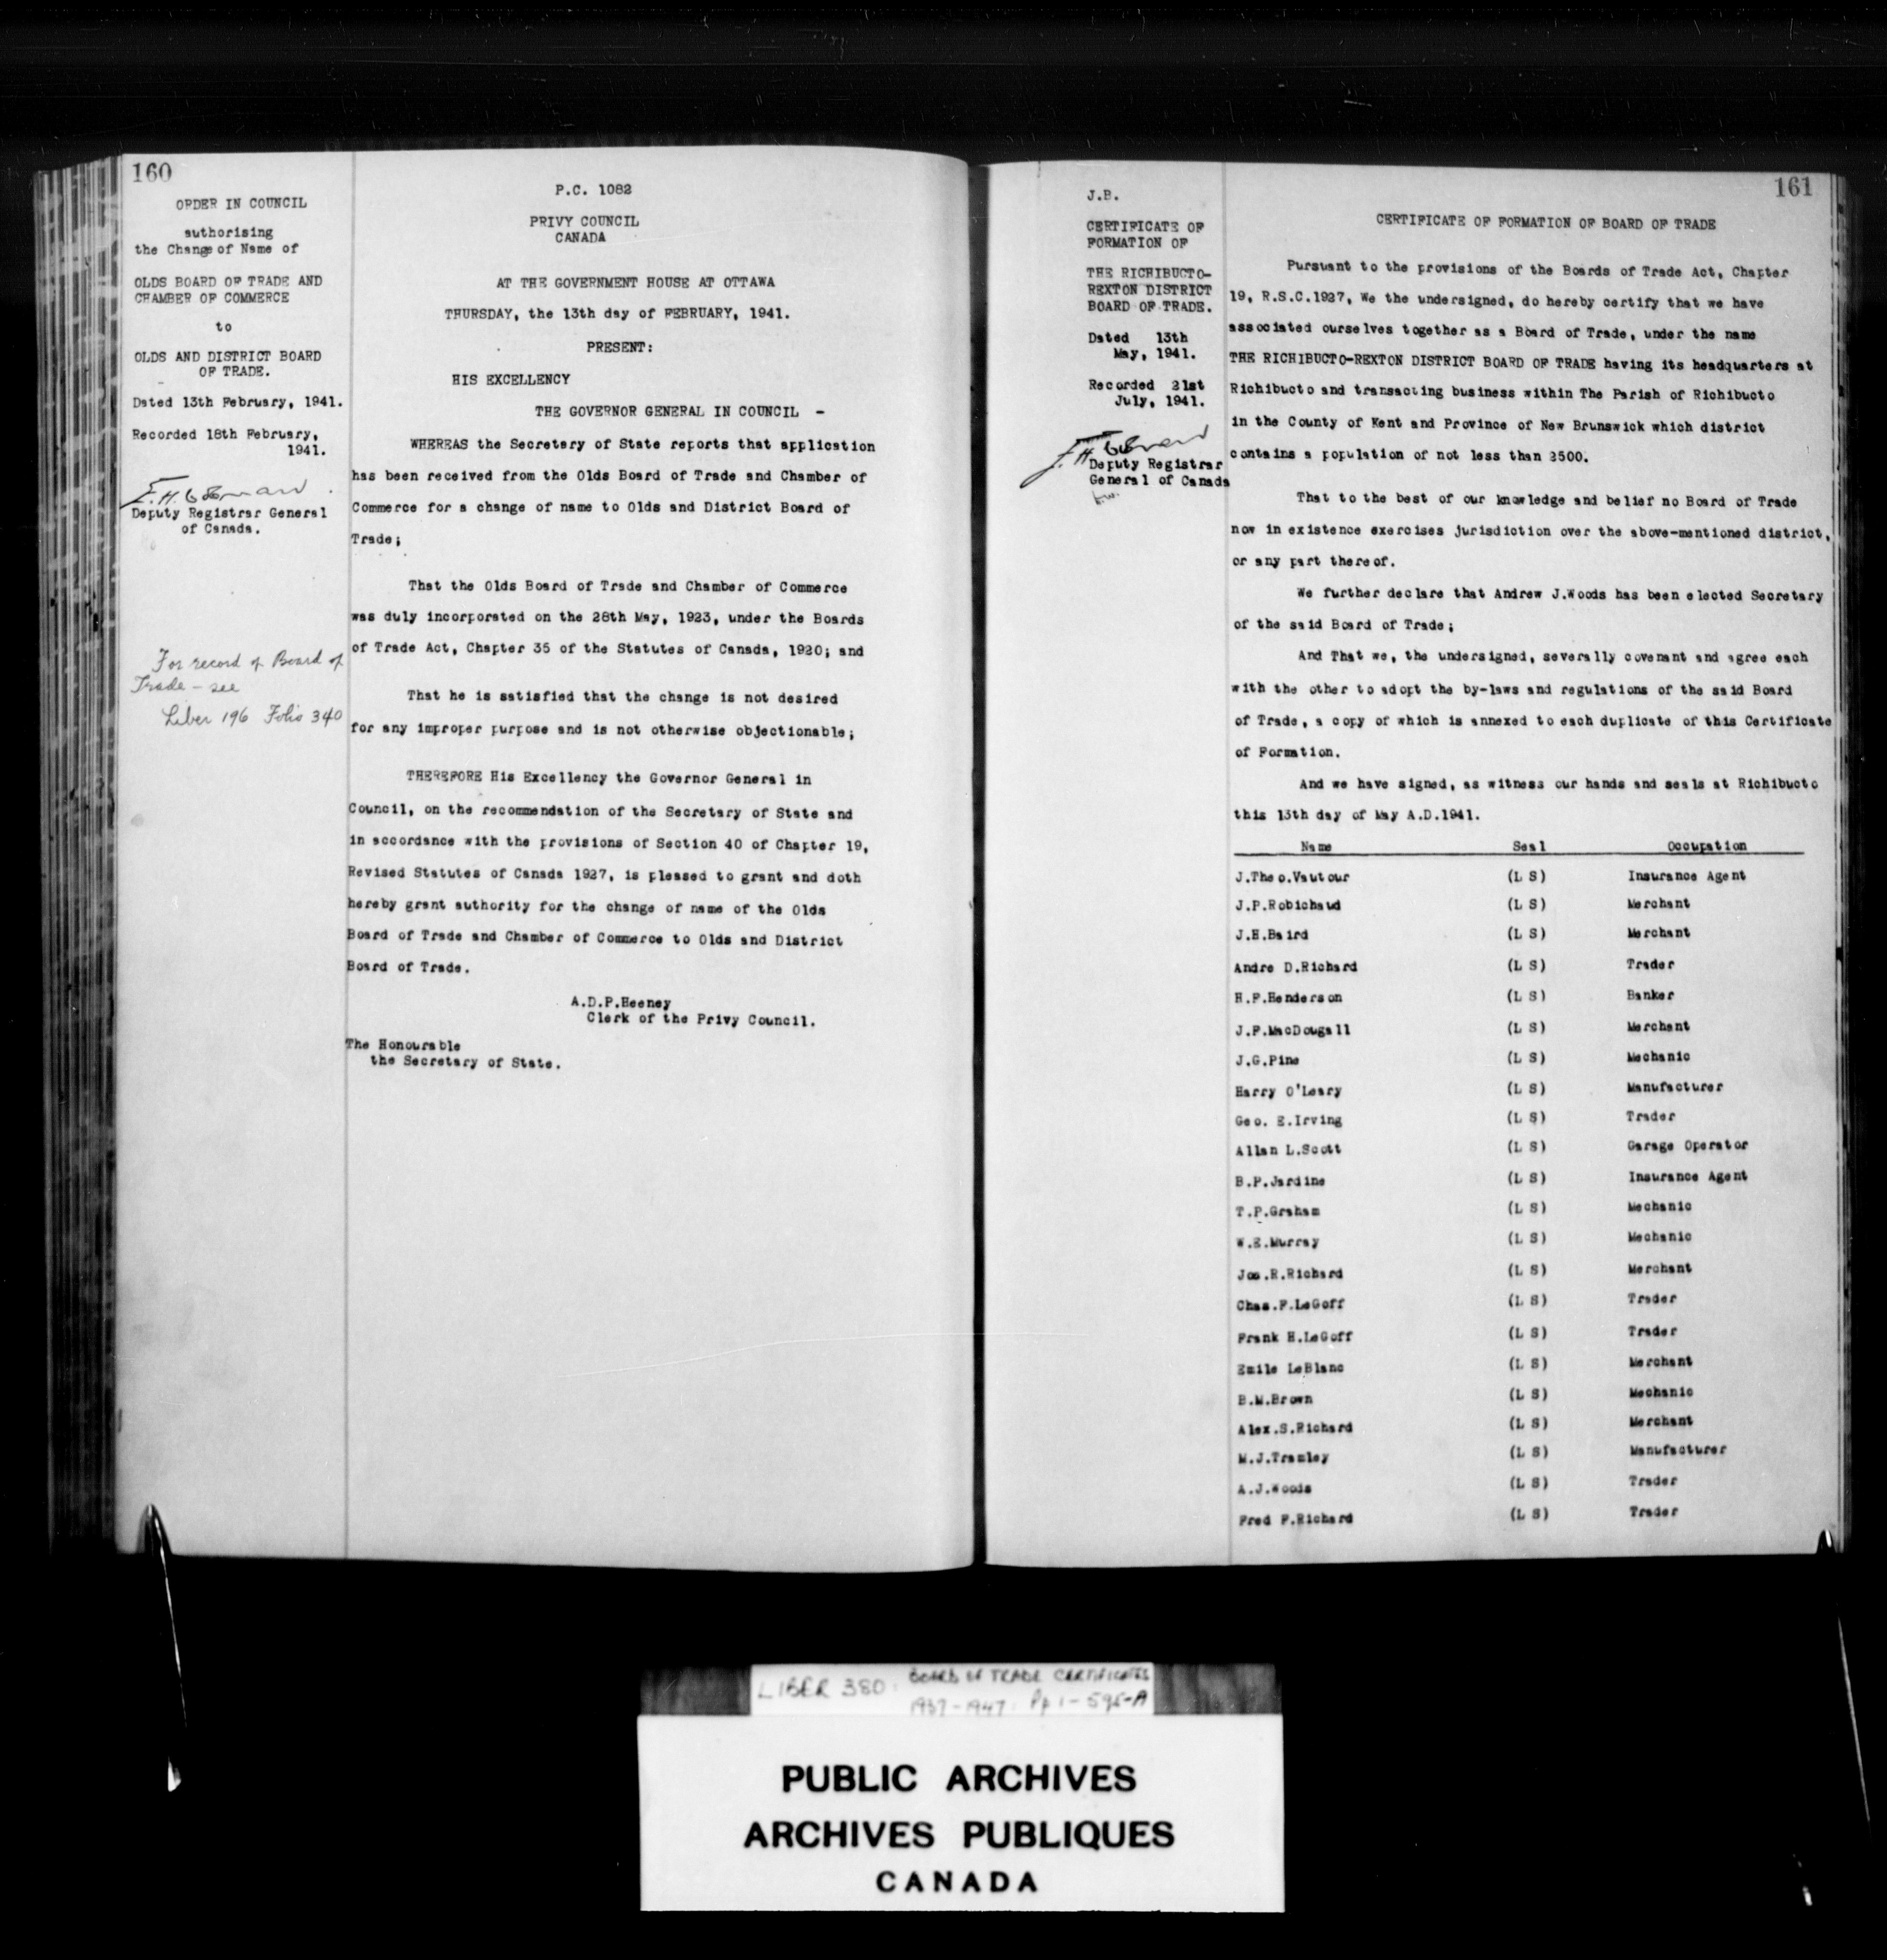 160
ORDER IN COUNCIL
authorising
the Change of Name of
OLDS BOARD OF TRADE AND
CHAMBER OF COMMERCE
to
OLDS AND DISTRICT BOARD
OF TRADE.
Dated 13th February, 1941.
Recorded 18th February,
1941.
Deputy Registrar General
of Canada.
For record of Board of
Trade - see
Liber 196 Folio 340
P.C. 1082
PRIVY COUNCIL
CANADA
AT THE GOVERNMENT HOUSE AT OTTAWA
THURSDAY, the 13th day of FEBRUARY, 1941.
PRESENT:
HIS EXCELLENCY
THE GOVERNOR GENERAL IN COUNCIL -
WHEREAS the Secretary of State reports that application
has been received from the Olds Board of Trade and Chamber of
Commerce for a change of name to Olds and District Board of
Trade;
That the Olds Board of Trade and Chamber of Commerce
was duly incorporated on the 28th May, 1923, under the Boards
of Trade Act, Chapter 35 of the Statutes of Canada, 1920; and
That he is satisfied that the change is not desired
for any improper purpose and is not otherwise objectionable;
THEREFORE His Excellency the Governor General in
Council, on the recommendation of the Secretary of State and
in accordance with the provisions of Section 40 of Chapter 19,
Revised Statutes of Canada 1927, is pleased to grant and doth
hereby grant authority for the change of name of the Olds
Board of Trade and Chamber of Commerce to Olds and District
Board of Trade.
A.D.P.Heeney
Clerk of the Privy Council.
The Honourable
the Secretary of State.
161
J.B.
CERTIFICATE OF
FORMATION OF
THE RICHIBUCTO-
REXTON DISTRICT
BOARD OF TRADE.
Dated 13th
May, 1941.
Recorded 21st
July, 1941.
Deputy Registrar
General of Canada
CERTIFICATE OF FORMATION OF BOARD OF TRADE
Pursuant to the provisions of the Boards of Trade Act, Chapter
19, R.S.C.1927, We the undersigned, do hereby certify that we have
associated ourselves together as a Board of Trade, under the name
THE RICHIBUCTO-REXTON DISTRICT BOARD OF TRADE having its headquarters at
Richibucto and transacting business within The Parish of Richibucto
in the County of Kent and Province of New Brunswick which district
contains a population of not less than 2500.
That to the best of our knowledge and belief no Board of Trade
now in existence exercises jurisdiction over the above-mentioned district,
or any part thereof.
We further declare that Andrew J.Woods has been elected Secretary
of the said Board of Trade;
And That we, the undersigned, severally covenant and agree each
with the other to adopt the by-laws and regulations of the said Board
of Trade, a copy of which is annexed to each duplicate of this Certificate
of Formation.
And we have signed, as witness our hands and seals at Richibucto
this 13th day of May A.D.1941.
Name Seal Occupation
J.Theo.Vautour (L S) Insurance Agent
J.P.Robichaud (L S) Merchant
J.H.Baird (L S) Merchant
Andre D.Richard (L S) Trader
H.P.Henderson (L S) Banker
J.F.MacDougall (L S) Merchant
J.G.Pine (L S) Mechanic
Harry O'Leary (L S) Manufacturer
Geo. E.Irving (L S) Trader
Allan L.Scott (L S) Garage Operator
B.P.Jardine (L S) Insurance Agent
T.P.Graham (L S) Mechanic
W.E.Murray (L S) Mechanic
Jos.R.Richard (L S) Merchant
Chas.F.LeGoff (L S) Trader
Frank H.LeGoff (L S) Trader
Emile LeBlanc (L S) Merchant
B.M.Brown (L S) Mechanic
Alex.S.Richard (L S) Merchant
M.J.Tramley (L S) Manufacturer
A.J.Woods (L S) Trader
Fred F.Richard (L S) Trader
LIBER 380. BOARD OF TRADE CERTIFICATES
1937-1947. Pp 1-595-A
PUBLIC ARCHIVES
ARCHIVES PUBLIQUES
CANADA